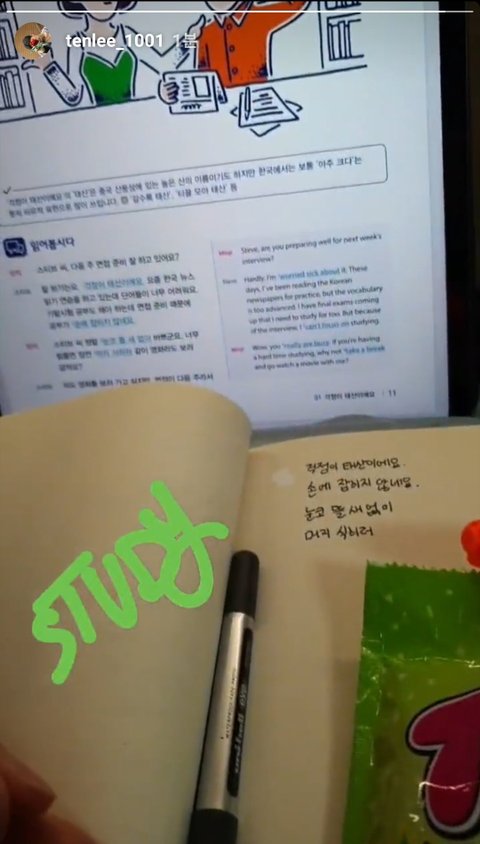 tenlee_1001 1분
'걱정이 태산이에요'의 '태산'은 중국 산둥성에 있는 높은 산의 이름이기도 하지만 한국에서는 보통 '아주 크다'는
뜻의 비유적 표현으로 많이 쓰입니다. 예 '갈수록 태산', '티끌 모아 태산' 등
읽어봅시다
스티브 씨, 다음 주 면접 준비 잘 하고 있어요?
잘 하기는요. 걱정이 태산이에요. 요즘 한국 뉴스
읽기 연습을 하고 있는데 단어들이 너무 어려워요.
기말시험 공부도 해야 하는데 면접 준비 때문에
공부가 손에 잡히지 않네요.
정말 눈코 뜰 새 없이 바쁘군요. 너무
힘들면 잠깐 머리 식히러 같이 영화라도 보러
갈까요?
저도 영화를 보러 가고 싶지만, 면접이 다음 주라서
Minji Steve, are you preparing well for next week's
interview?
Steve Hardly. I'm worried sick about it. These
days, I've been reading the Korean
newspapers for practice, but the vocabulary
is too advanced. I have final exams coming
up that I need to study for too. But because
of the interview, I can't focus on studying.
Minji Wow, you really are busy. If you're having
a hard time studying, why not take a break
and go watch a movie with me?
01 걱정이 태산이에요 11
걱정이 태산이에요.
손에 잡히지 않네요.
눈코 뜰 새 없이
머리 식히러
STUDY